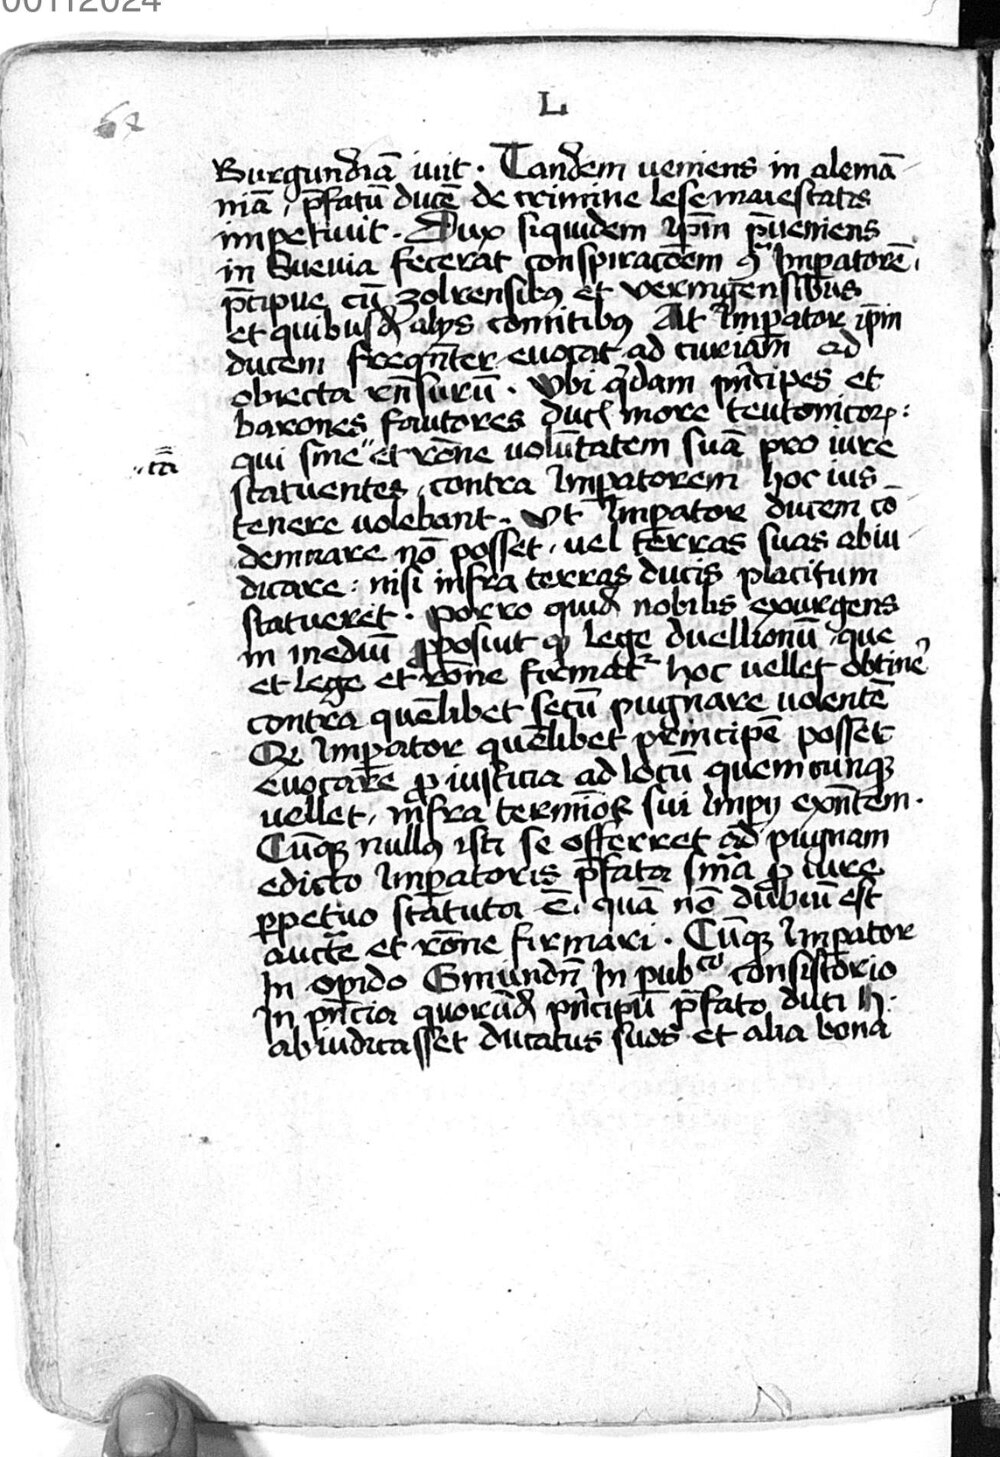 00112024
L
62
Burgundiā iuit . Tandem ueniens in alemā
niā , p̄fatū ducē de crimine lese maiestatis
impetiuit . Dux siquidem ip̄m p̄ueniens
in Sueuia fecerat conspiracōem 9ͣ Imp̄atorē ,
p̄cipue cū zolrensibꝰ et veringensibus
et quibusdā alijs comitibꝰ At Imp̄ator ip̄m
ducem freqn̄ter euocat ad curiam ad
obiecta rn̄surū . Vbi qͥdam pͥncipes et
barones fautores duc̄ more teutonicoꝝ :
qui sine " et rōne volūtatem suā pro iure
.. cā
statuentes , contra Imp̄atorem hoc ius
tenere uolebant . Vt Imp̄ator ducem cō
demnare nō posset , uel terras suas abiu
dicare : nisi infra terras ducis placitum
statueret . Porro quidā nobilis exurgens
in mediū ꝓposuit qꝫ lege duellionū que
et lege et rōne firmatͬ hoc uellet obtinē
contra quēlibet secū pugnare uolentē
Qꝫ Imp̄ator quēlibet principē posset
euocare ꝓ iusticia ad locū quemcunqꝫ
uellet , infra termīos sui Imp̄ij exn̄tem .
Cūqꝫ nullꝰ isti se offerret ad pugnam
edicto Imp̄atoris p̄fata sn̄ia ꝓ iure
ꝑpetuo statuta ē . quā nō dubiū est
aucte et rōne firmari . Cūqꝫ Imp̄ator
In opido Gmundn̄ In pubᶜᵒ consistorio
In pn̄cia quorūdā pͥncipū p̄fato duci h :
abiudicasset ducatus suos et alia bona